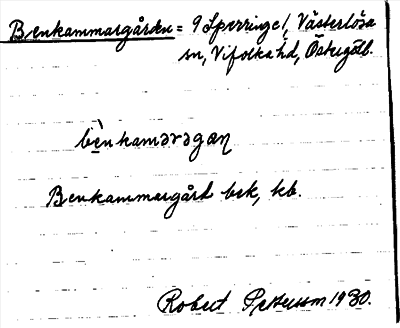 Benkammargården = 9 Sperringe 1, Västerlösa
sn, Vifolka hd, Östergötl.
bènkamaragaɲ
Benkammargård bek, kb.
Robert Pettersson 1930.